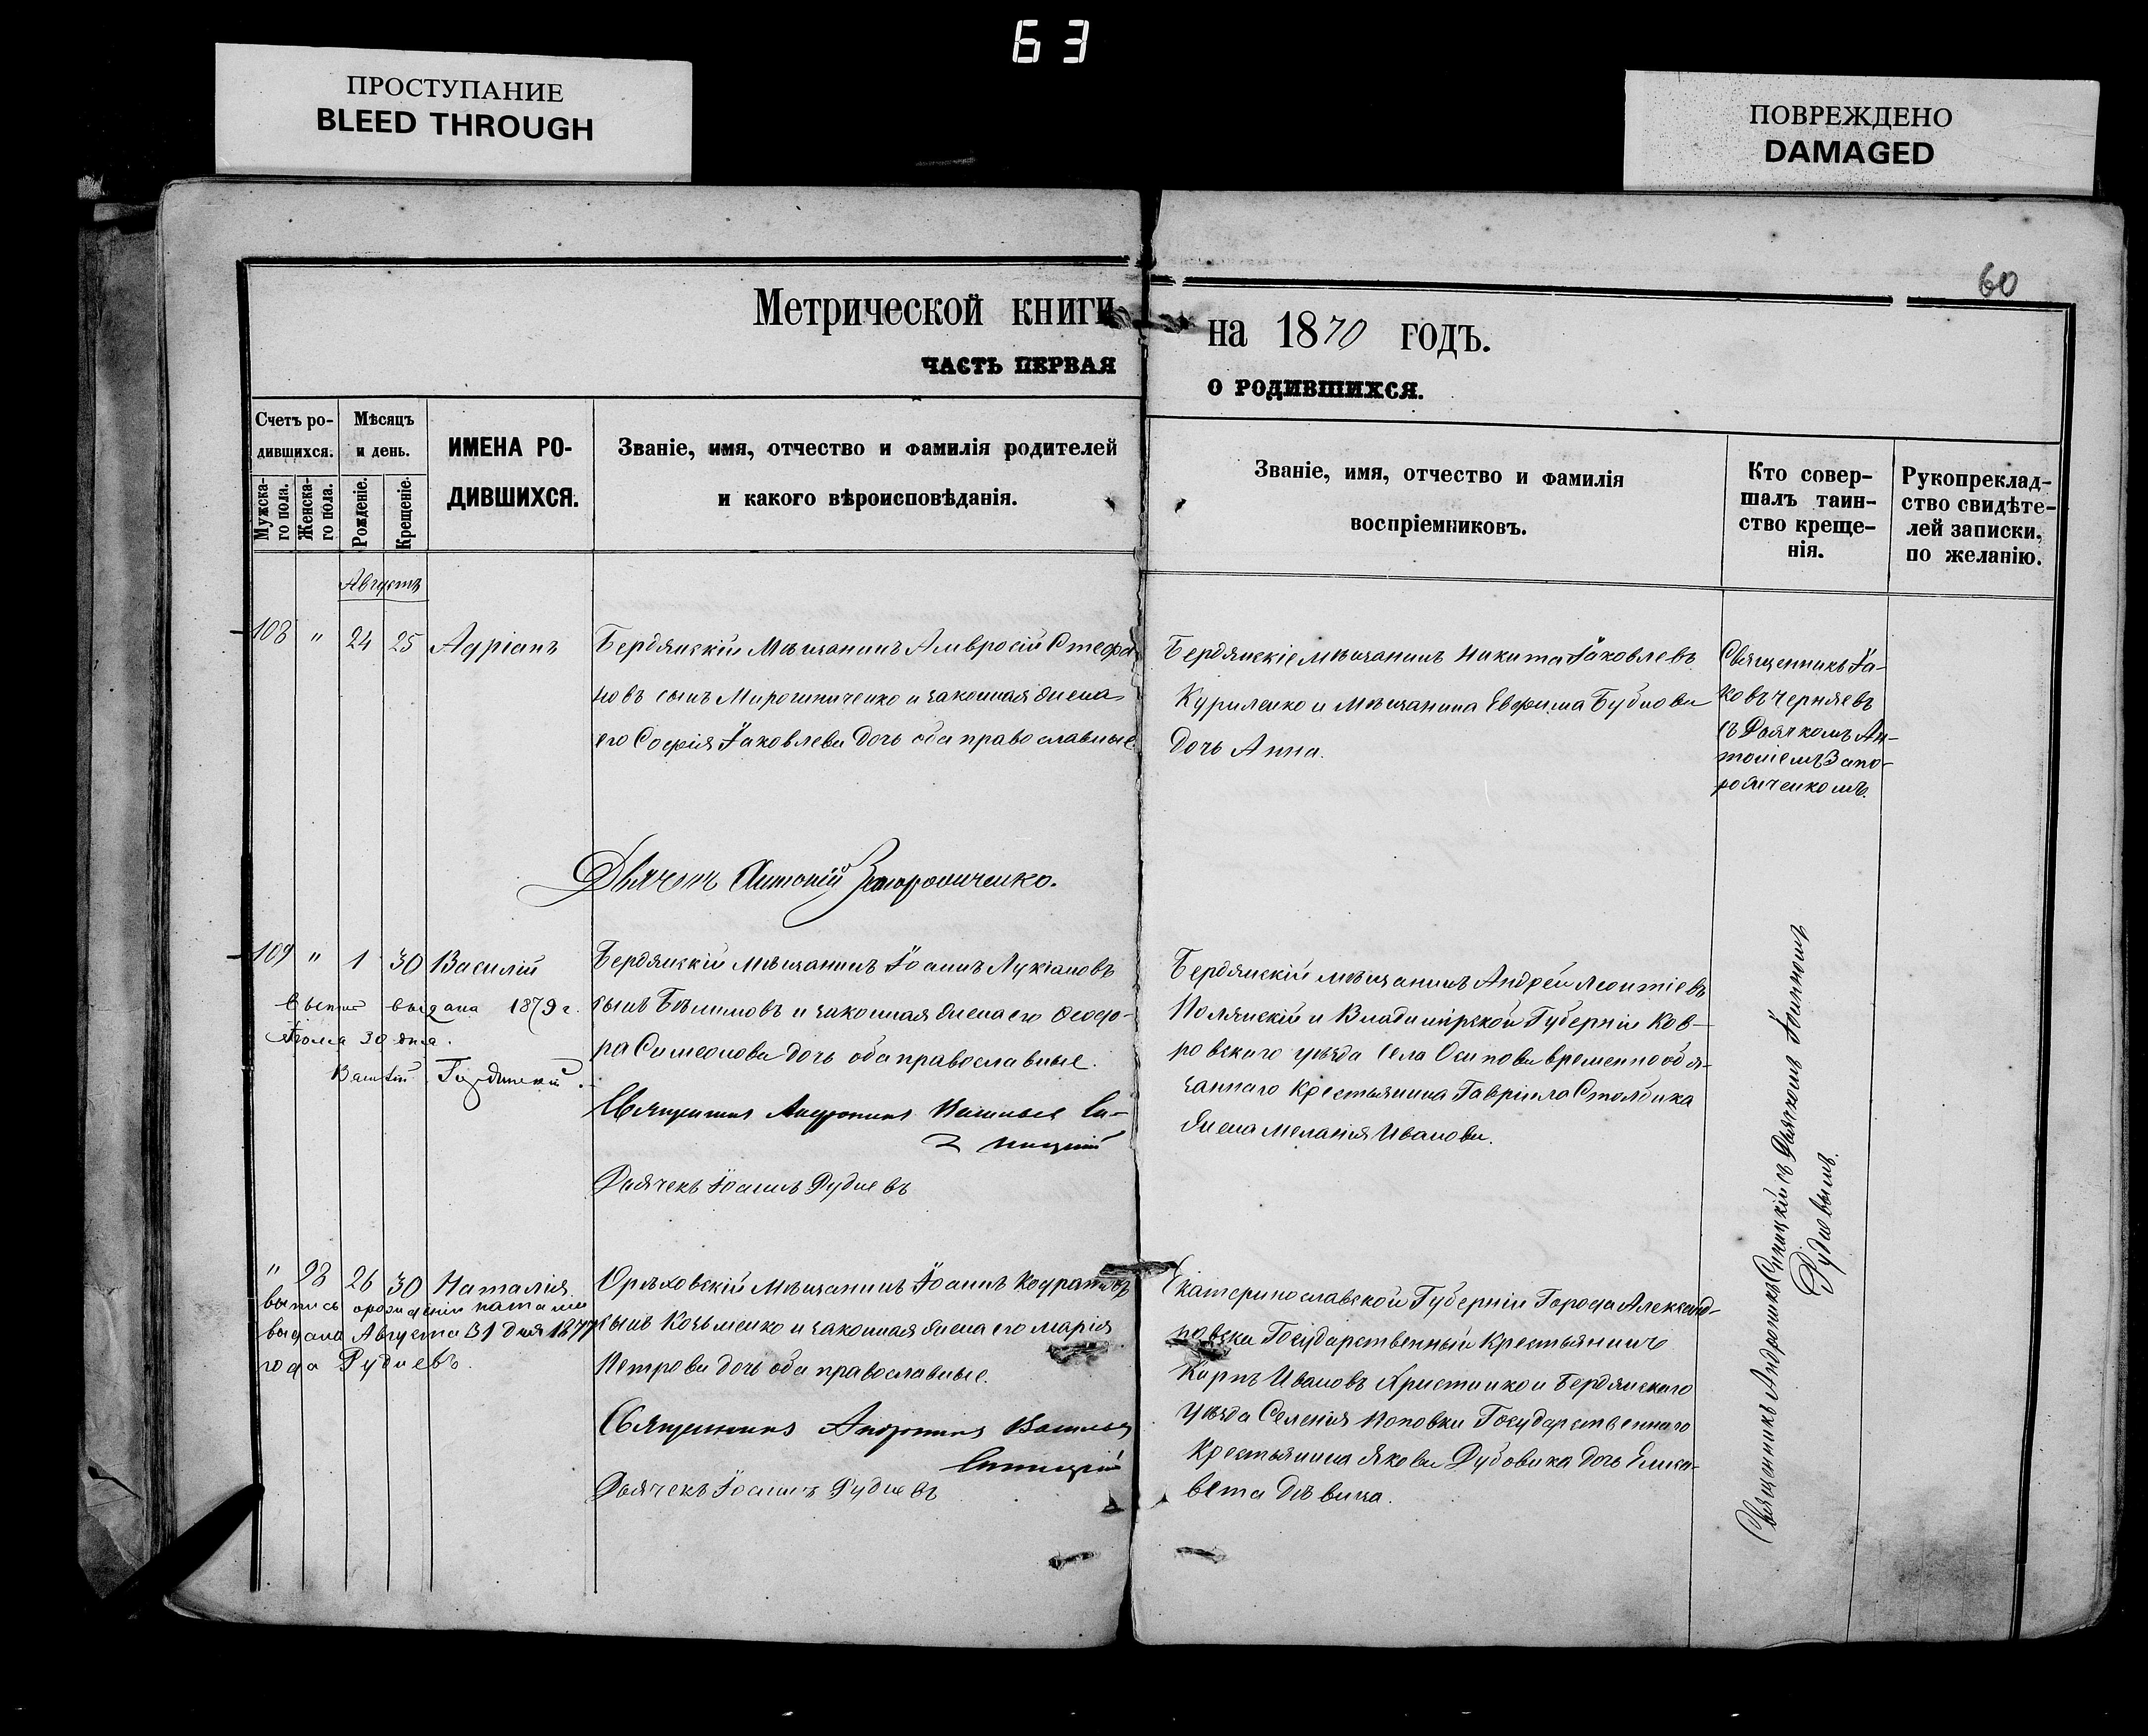 63
ПРОСТУПАНИЕ
BLEED THROUGH
ПОВРЕЖДЕНО
DAMAGED
60
Метрической книги на 1870 годъ.
ЧАСТЬ ПЕРВАЯ О РОДИВШИХСЯ.
Счетъ ро-
дившихся.
Мужска-
го пола.
Женска-
го пола.
Мѣсяцъ
и день.
Рожденіе.
Крещеніе.
ИМЕНА РО-
ДИВШИХСЯ.
Званіе, имя, отчество и фамилія родителей
и какого вѣроисповѣданія.
Званіе, имя, отчество и фамилія
воспріемниковъ.
Кто совер-
шалъ таин-
ство креще-
нія.
Рукопреклад-
ство свидѣте-
лей записки,
по желанію.
Августъ
108 " 24 25 Адріанъ
Бердянскій Мѣщанинъ Амвросій Стефа
новъ сынъ Мирошниченко и законная жена
его Софія Іаковлева дочь оба православные
Бердянскіе мѣщанинъ Никита Іаковлевъ
Куриленко и мѣщанина Евфима Бубнова
дочь Анна.
Священникъ Іа-
ковъ Черняевъ
съ Дьячкомъ Ан-
тоніемъ Запо-
рожченкомъ.
Дьячекъ Антоній Запорожченко.
109 " 1 30 Василій
выдана 1879 г.
30 дня.
Бердянскій мѣщанинъ Іоаннъ Лукіановъ
сынъ и законная жена его Ѳеодо-
ра Симеонова дочь оба православные.
Священникъ Андроникъ Васильевъ Си-
ницкій
Дьячекъ Іоаннъ Рудневъ
Бердянскій мѣщанинъ Андрей Леонтіевъ
Полянскій и Владимірской Губерніи Ков-
ровскаго уѣзда Села Осипова временно обя-
заннаго Крестьянина Гавріила Столбика
жена Меланія Иванова.
" 98 26 30 Наталія
выпись о рожденіи Наталіи
выдана Августа 31 дня 1877
года Рудневъ.
Орѣховскій мѣщанинъ Іоаннъ Кодратовъ
сынъ Козьменко и законная жена его Марія
Петрова дочь оба православные.
Священникъ Андроникъ Васильевъ
Синицкій
Дьячекъ Іоаннъ Рудневъ
Екатеринославской Губерніи Города Александ-
ровска Государственный Крестьянинъ
Карпъ Ивановъ Христинко и Бердянскаго
Уѣзда Селенія Поповки Государственнаго
Крестьянина Якова Дубовика дочь Елиса-
вета дѣвица.
Священникъ Андроникъ Синицкій съ Дьячкомъ Іоанномъ
Рудневымъ.